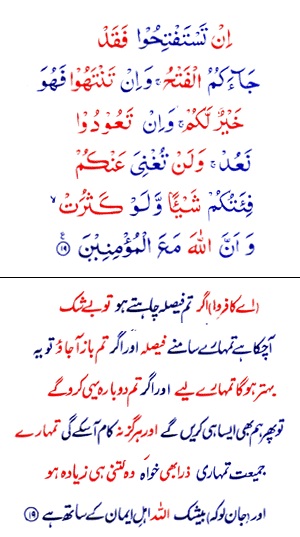 اِنْ تَسْتَفْتِحُوْا فَقَدْ
جَآءَكُمُ الْفَتْحُ ۚ وَاِنْ تَنْتَهُوْا فَهُوَ
خَيْرٌ لَّكُمْ ۚ وَاِنْ تَعُوْدُوْا
نَعُدْ ۚ وَلَنْ تُغْنِىَ عَنْكُمْ
فِئَتُكُمْ شَيْـًٔا وَّلَوْ كَثُرَتْ ۙ
وَاَنَّ اللّٰهَ مَعَ الْمُؤْمِنِيْنَ ۧ ﴿۱۹﴾
(اے کافرو!) اگر تم فیصلہ چاہتے ہو تو بے شک
آچکا ہے تمہارے سامنے فیصلہ اور اگر تم باز آ جاؤ تو یہ
بہتر ہوگا تمہارے لیے اور اگر تم دوبارہ یہی کرو گے
تو پھر ہم بھی ایسا ہی کریں گے اور ہرگز نہ کام آسکے گی تمہارے
جمعیت تمہاری ذرا بھی خواہ وہ کتنی ہی زیادہ ہو
اور (جان لو کہ) بیشک اللہ اہل ایمان کے ساتھ ہے ﴿۱۹﴾